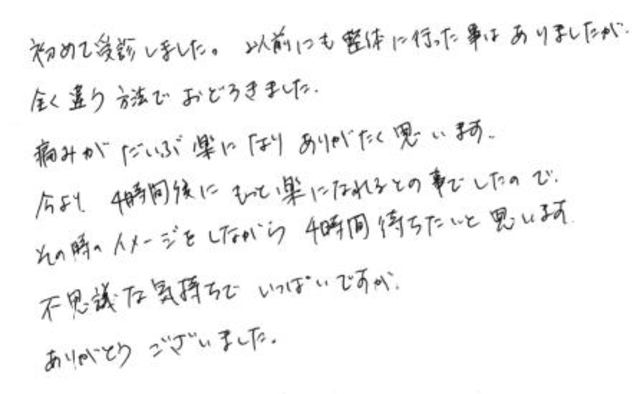 初めて受診しました。以前にも整体に行った事はありましたが
全く違う方法でおどろきました.
痛みがだいぶ楽になりありがたく思います.
今より 4時間後にもっと楽になれるとの事でしたので.
その時のイメージをしながら 4時間待ちたいと思います
不思議な気持ちでいっぱいですが.
ありがとうございました.